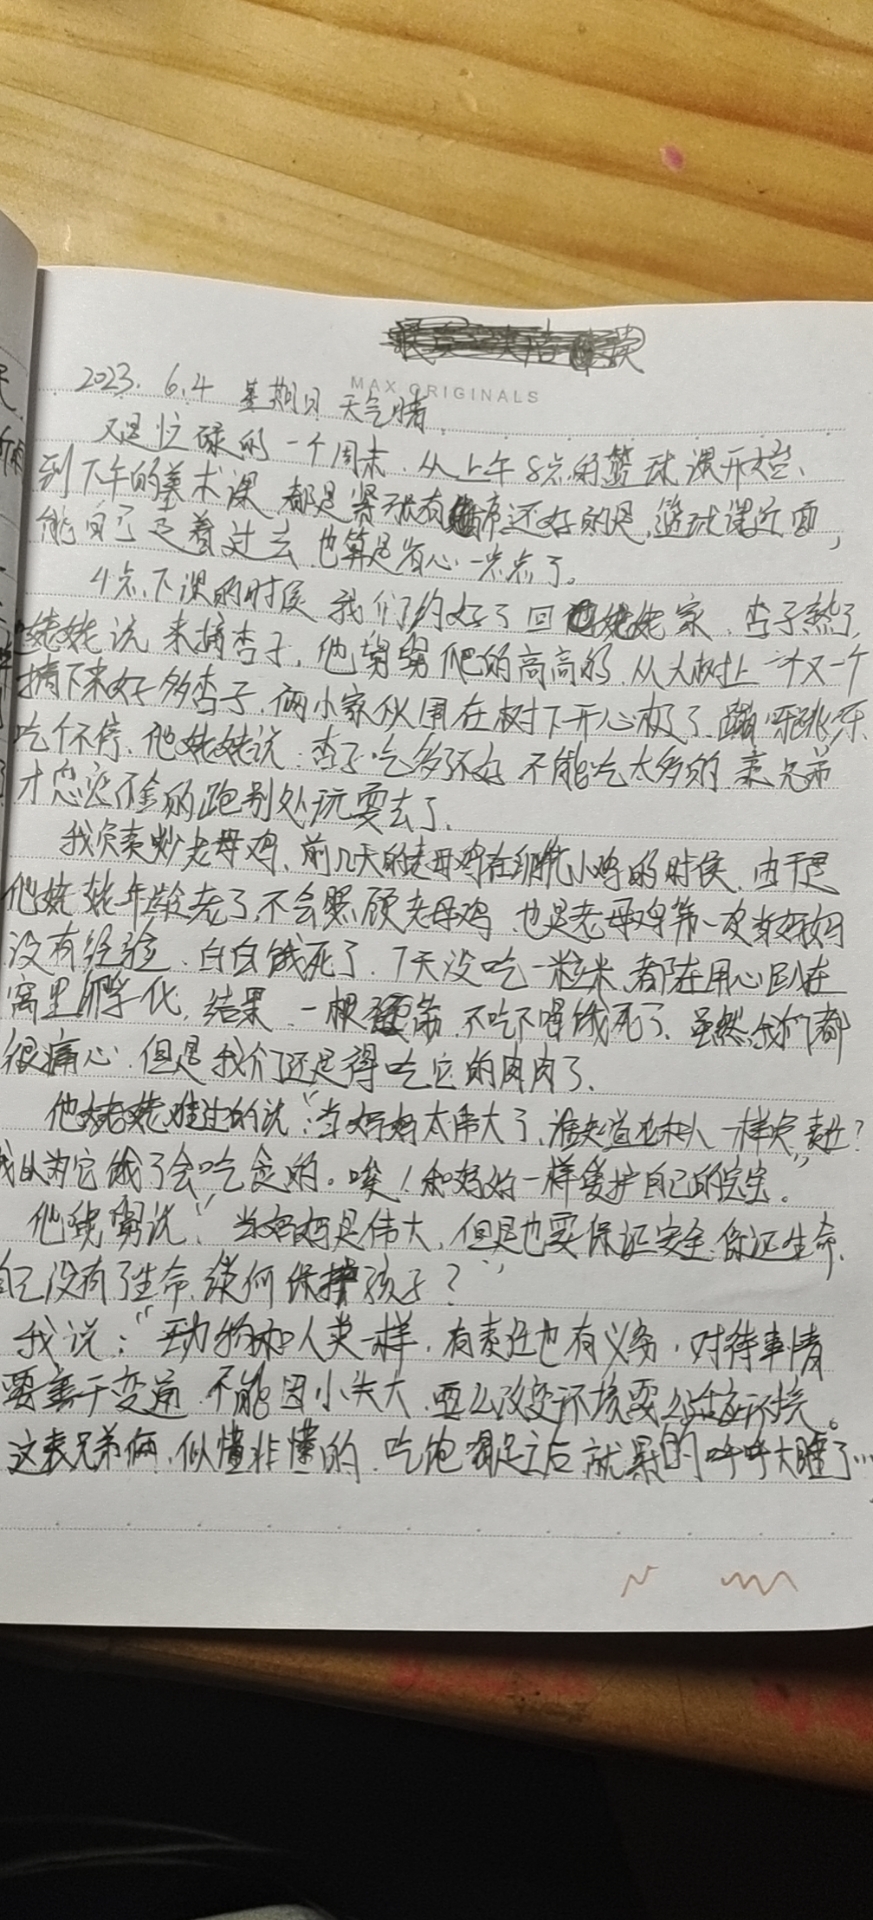 MAX ORIGINALS
2023. 6.4 星期日 天气晴.
又是忙碌的一个周末、从上午8点的篮球课开始、
到下午的美术课 都是紧张有序 还好的是,篮球课近 面,
能自己走着过去 也算是省心一点点了。
4点下课的时候 我们约好了回他姥姥家、杏子熟了,
姥姥说 来摘杏子, 他舅舅爬的高高的 从大树上一个又一个
摘下来好多杏子, 俩小家伙围在树下开心极了 蹦呀跳呀
吃个不停、他姥姥说: 杏子吃多了不好 不能吃太多的 表兄弟
才恋恋不舍的跑别处玩耍去了.
我负责炒老母鸡、前几天的老母鸡在孵小鸡的时候、由于是
他姥姥年龄老了,不会照顾老母鸡 也是老母鸡第一次当妈妈
没有经验、白白饿死了. 7天没吃一粒米 都在用心趴在
窝里孵化, 结果 一根筋 不吃不喝饿死了, 虽然我们都
很痛心、但是我们还是得吃它的肉肉了、
他姥姥难过的说:"当妈妈太伟大了、谁知道也和人一样负责?
我以为它饿了会吃食的。唉!和妈妈一样爱护自己的宝宝。"
他舅说:" 当妈妈是伟大, 但是也要保证安全 保证生命.
自己没有了生命  保护孩子?"
我说:"动物和人类一样, 有责任也有义务, 对待事情
要善于变通 不能因小失大、要么改变环境要么适应环境。
这表兄弟俩、似懂非懂的、吃饱喝足之后 就累的呼呼大睡了…